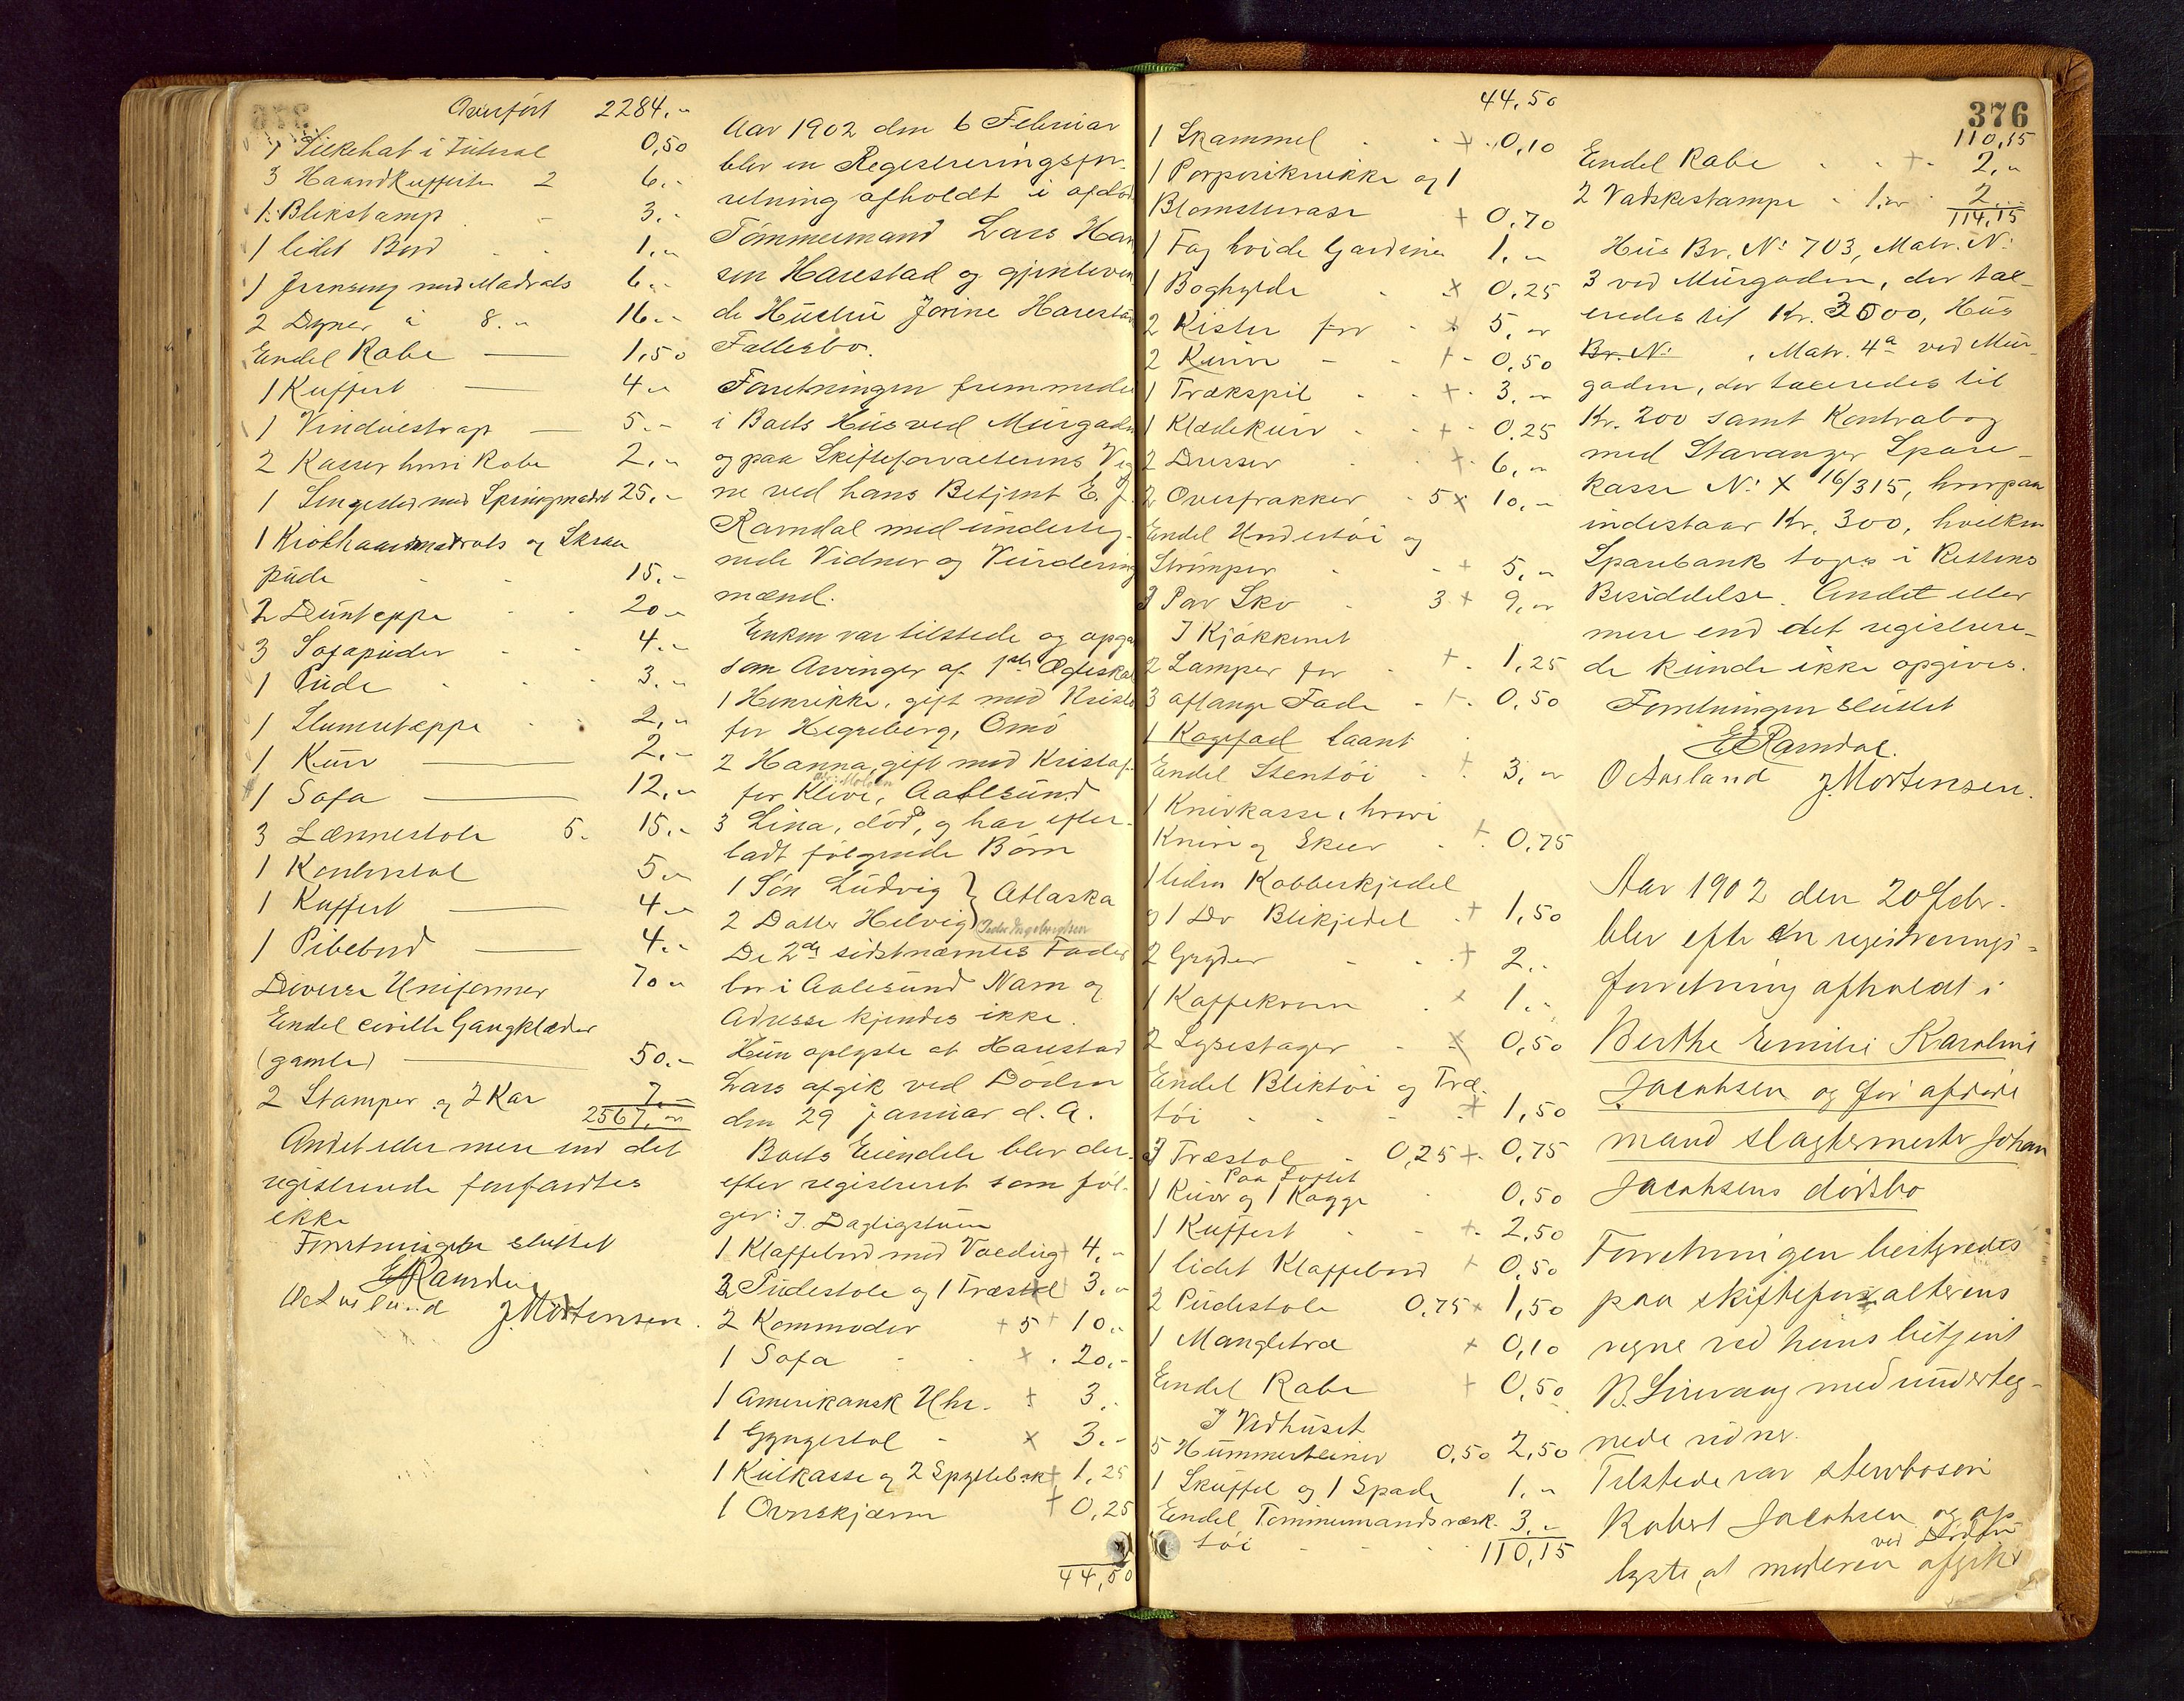 Overført 2284.-
1 Silkehat i Futeral 0,50
3 Haandkufferter 2 6.-
1 Blikstamp - 3.-
1 lidet Bord - - 1.-
1 Jernseng med Madrats 6.-
2 Dyner á 8.- 16.-
Endel Rabe — 1,50
1 Kuffert — 4.-
1 Vinduestrap — 5.-
2 Kasser hvori Rabe 2.-
1 Sengested med Springmadrt 25.-
1 Krøthaarsmadrats og Skraa
pude - - 15.-
2 Dunteppe - - 20.-
3 Sofapuder - - 4.-
1 Pude - - - 3.-
1 Slumreteppe - - 2.-
1 Kurv — 2.-
1 Sofa — 12.-
3 Lænnestole 5. 15.-
1 Kontorstol 5.-
1 Kuffert — 4.-
1 Pibebord — 4.-
Diverse Uniformer 70.-
Endel civille Gangklæder
(gamle) — 50.-
2 Stamper og 2 Kar 7.-
2567.-
Andet eller mere end det
registrerede forefandtes
ikke
Forretningen sluttet
E Ramdal
O Aasland J. Mortensen.
Aar 1902 den 6 Februar
blev en Registreringsfor-
retning afholdt i afdøde
Tømmermand Lars Han
sen Harestad og gjenleven
de Hustru Jorine Harestad
Fællesbo.
Forretningen fremmedes
i Boets Hus ved Murgaden
og paa Skifteforvalterens Veg
ne ved hans Betjent E. J.
Ramdal med underteg-
nede Vidner og Vurderings
mænd.
Enken var tilstede og opgav
som Arvinger af 1ste Ægteskab
1 Henrikke, gift med Kristo
fer Hegreberg, Omø
2 Hanna, gift med Kristof-
fer Kleive, Aalesund
3 Lina, død, og har efter-
ladt følgende Børn
1 Søn Ludvig } Atlaska
2 Datter Helvig Peder Ingebrigtsen
De 2de sidstnæmtes Fader
bor i Aalesund Navn og
Adresse kjendes ikke.
Hun oplyste at Harestad
Lars afgik ved Døden
den 29 Januar d. A.
Boets Eiendele blev der-
efter registreret som føl-
ger: I. Dagligstuen
1 Klaffebord med Voxdug + 4.-
2 Pudestole og 1 Træstol + 3.-
2 Kommoder + 5 + 10.-
1 Sofa - - x . 20.-
1 Amerikansk Uhr. + 3.-
1 Gyngestol - x 3.-
1 Kulkasse og 2 Spyttebak + 1,25
1 Ovnskjærm + 0,25
44,50
44,50
1 Skammel - - + . 0,10
1 Porpørikrukke og 1
Blomstervase + 0,70
1 Fag hvide Gardiner 1.-
1 Boghylde - x 0,25
2 Kister for - x 5.-
2 Kurve - - + - 0,50
1 Trækspil - - + . 3.-
1 Klædekurv - - + - 0,25
2 Dresser - + . 6.-
2 Overfrakker - 5 x 10.-
Endel Undertøi og
Strømper - - + 5.-
3 Par Sko - 3 + 9.-
I Kjøkkenet
2 Lamper for - + . 1,25
3 aflange Fade - + . 0,50
1 Kagefad laant
Endel Stentøi - + . 3.-
1 Knivkasse, hvori
Knive og Skeer - + . 0,75
1 liden Kobberkjedel
og 1 Do Blikjedel + 1,50
2 Gryder - - + 2.-
1 Kaffekvern x 1.-
2 Lysestager - x 0,50
Endel Bliktøi og Træ-
tøi - - - + 1,50
3 Træstole - 0,25 + . 0,75
Paa Loftet
1 Kurv og 1 Kagge - 0,50
1 Kuffert - - + . 2,50
1 lidet Klaffebord + 0,50
2 Pudestole 0,75 x 1,50
1 Mangletræ x 0,10
Endel Rabe + 0,50
I Vedhuset
5 Hummerteiner 0,50 2,50
1 Skuffel og 1 Spade 1.-
Endel Tømmermandsværk- 3.-
tøi - - - 110,15
376
110,15
Endel Rabe - - + - 2.-
2 Vadskestampe - 1.- 2.-
114,15
Hus Br. No 703, Matr. No
3 ved Murgaden, der tax-
eredes til Kr. 3500, Hus
Br. No , Matr. 4a ved Mur-
gaden, der taxeredes til
Kr. 200 samt Kontrabog
med Stavanger Spare-
kasse No X 16/315, hvorpaa
indestaar Kr. 300, hvilken
Sparebank toges i Rettens
Besiddelse. Andet eller
mere end det registrere-
de kunde ikke opgives.
Forretningen sluttet
E Ramdal.
O Aasland J. Mortensen.
Aar 1902 den 20 Febr.
blev efter en registrerings-
forretning afholdt i
Berthe Emilie Karoline
Jacobsen og før afdøde
mand slagtermester Johan
Jacobsens dødsbo
Forretningen bestyredes
paa skifteforvalterens
vegne ved hans betjent
B. Sirevaag med underteg-
nede vidner.
Tilstede var stervbosøn
Robert Jacobsen og op
lyste, at moderen afgik ved Døden